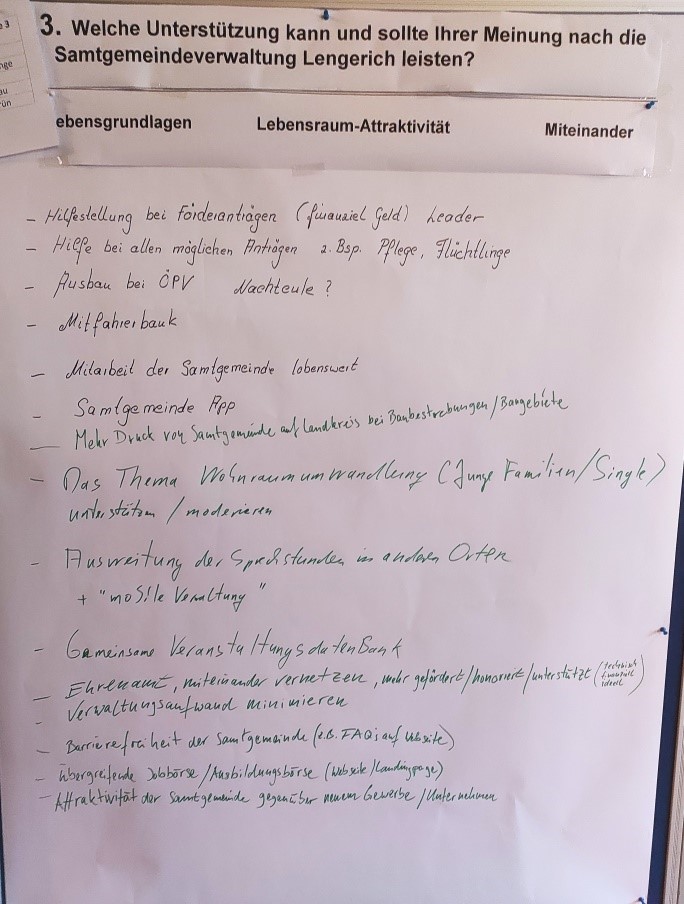 3. Welche Unterstützung kann und sollte Ihrer Meinung nach die
Samtgemeindeverwaltung Lengerich leisten?
ebensgrundlagen Lebensraum-Attraktivität Miteinander
- Hilfestellung bei Förderanträgen (finanziel Geld) Leader
- Hilfe bei allen möglichen Anträgen z. Bsp. Pflege, Flüchtlinge
- Ausbau bei ÖPV Nachteule?
- Mitfahrerbank
- Mitarbeit der Samtgemeinde lobenswert
- Samtgemeinde App
- Mehr Druck von Samtgemeinde auf Landkreis bei Baubestrebungen/Baugebiete
- Das Thema Wohnraumumwandlung (Junge Familien/Single)
unterstützen / moderieren
- Ausweitung der Sprechstunden in anderen Orten
+ "mobile Verwaltung"
- Gemeinsame Veranstaltungsdatenbank
- Ehrenamt, miteinander vernetzen, mehr gefördert/honoriert/unterstützt (technisch
finanziell
ideell)
- Verwaltungsaufwand minimieren
- Barrierefreiheit der Samtgemeinde (z.B. FAQs auf Website)
- Übergreifende Jobbörse/Ausbildungsbörse (Website/Landingpage)
- Attraktivität der Samtgemeinde gegenüber neuem Gewerbe/Unternehmen